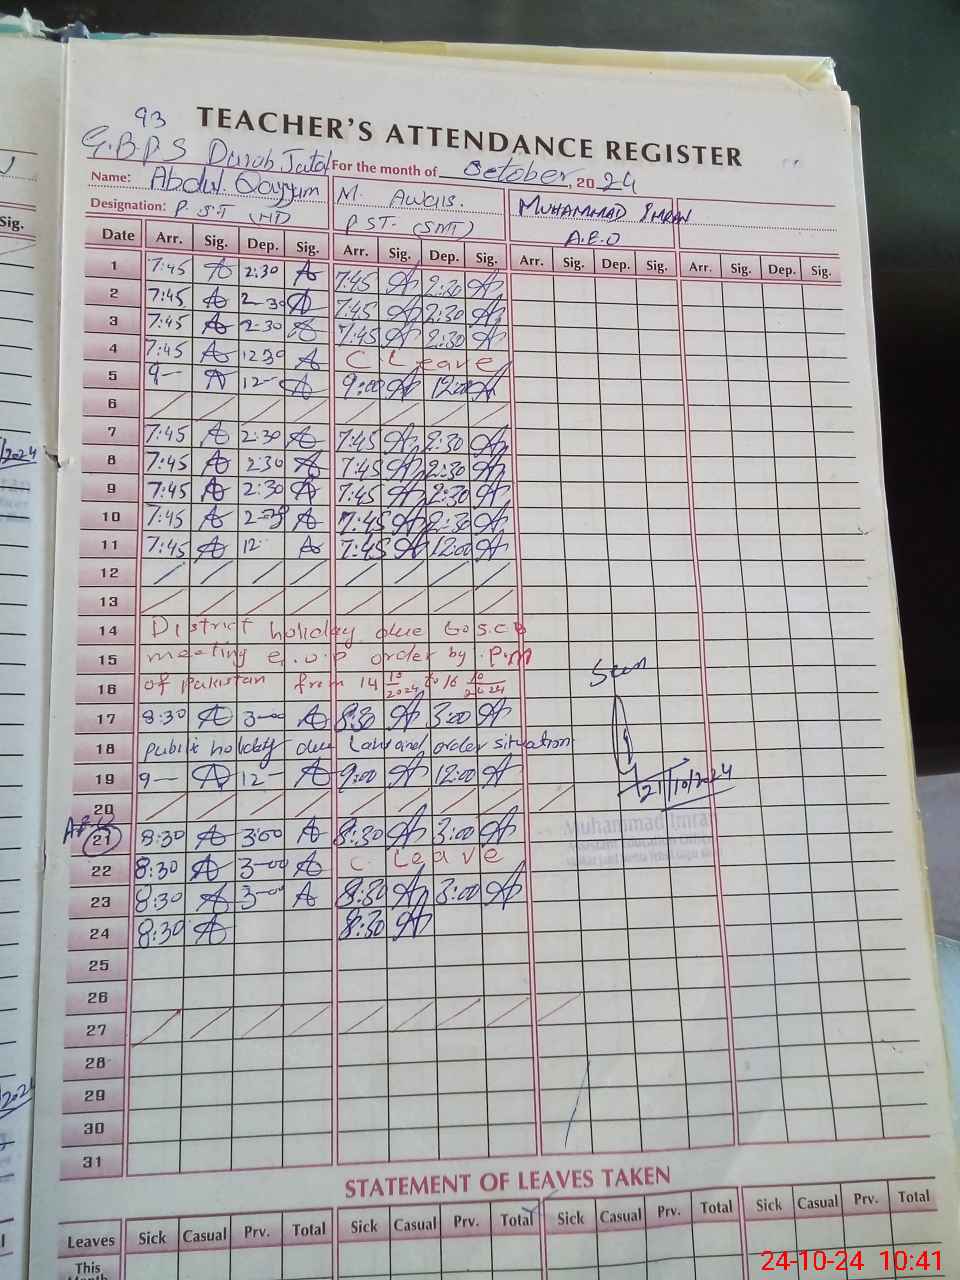 93
TEACHER'S ATTENDANCE REGISTER
G.B.P.S Darab Jatal For the month of October, 2024
Name: Abdul Qayyum M. Awais. MUHAMMAD IMRAN
Designation: P.S.T (HT) PST- (SMT) A.E.O
Date Arr. Sig. Dep. Sig. Arr. Sig. Dep. Sig. Arr. Sig. Dep. Sig. Arr. Sig. Dep. Sig.
1 7:45 2:30 7:45 2:30
2 7:45 2-30 7:45 2:30
3 7:45 2-30 7:45 2:30
4 7:45 1230 C Leave
5 9- 12- 9:00 12:00
6
7 7:45 2:30 7:45 2:30
8 7:45 2:30 7:45 2:30
9 7:45 2:30 7:45 2:30
10 7:45 2-30 7:45 2:30
11 7:45 12- 7:45 12:00
12
13
14 District holiday due to S.C.O
15 meeting order by P.M
16 of Pakistan from 14 10/2024 to 16 10/2024
Seen
17 8:30 3-00 8:30 3:00
18 public holiday due Law and order situation
19 9- 12- 9:00 12:00
21/10/2024
20
Muhammad Imran
21 8:30 3:00 8:30 3:00
22 8:30 3-00 C. Leave
23 8:30 3-00 8:30 3:00
24 8:30 8:30
25
26
27
28
29
30
31
STATEMENT OF LEAVES TAKEN
Leaves Sick Casual Prv. Total Sick Casual Prv. Total Sick Casual Prv. Total Sick Casual Prv. Total
This
24-10-24 10:41